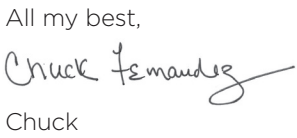 All my best,
Chuck Fernandez
Chuck